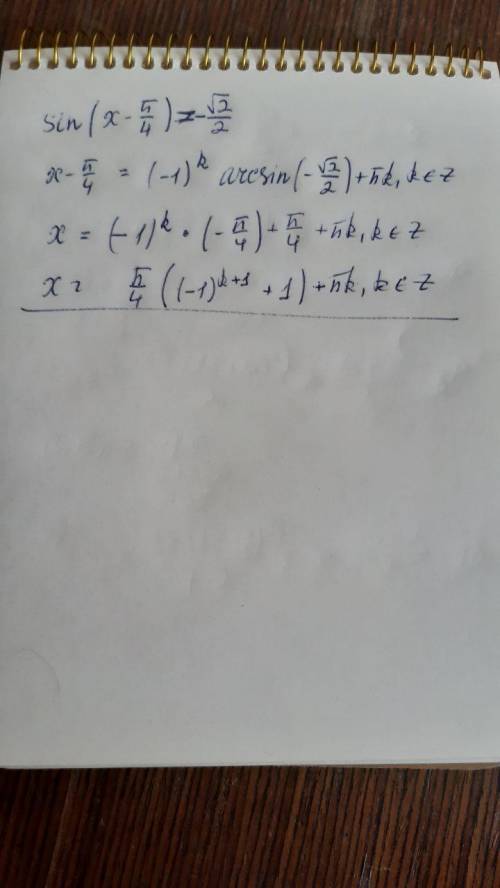 sin(x - π/4) = -√2/2
x - π/4 = (-1)^k arcsin(-√2/2) + πk, k ∈ z
x = (-1)^k • (-π/4) + π/4 + πk, k ∈ z
x = π/4 ((-1)^{k+1} + 1) + πk, k ∈ z